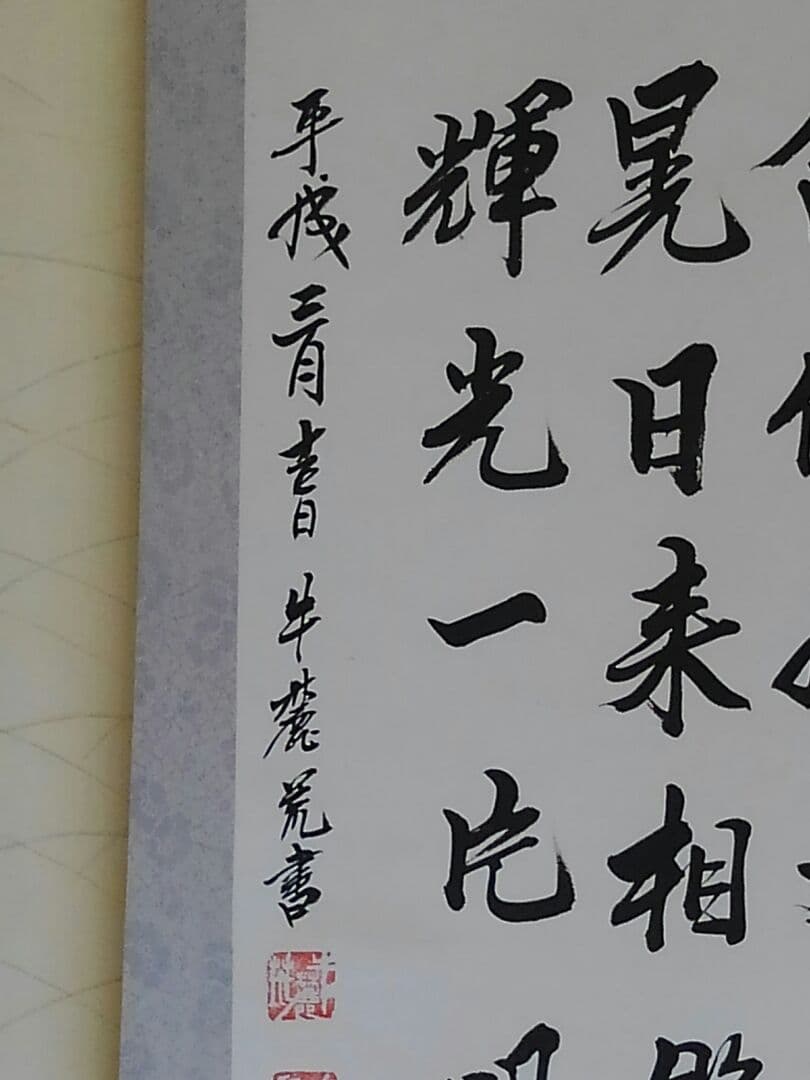 晃日来相
輝光一片
平成三月吉日 牛麓荒書